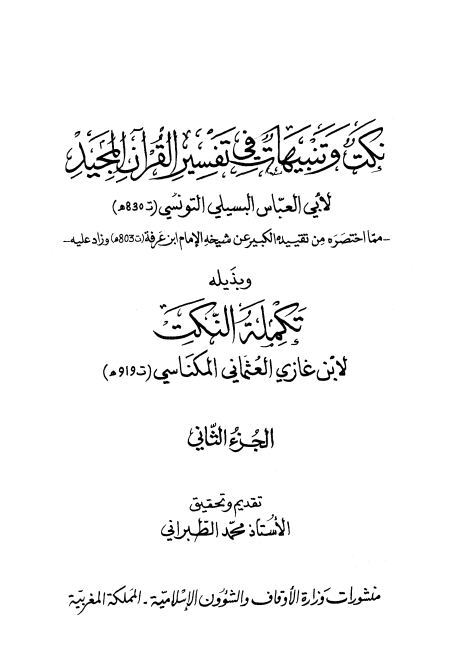 نكت وتنبيهات في تفسير القرآن المجيد
لأبي العباس البسيلي التونسي (ت 830ھ)
- مما اختصره من تقييده الكبير عن شيخه الإمام ابن عرفة (ت 803ھ) وزاد عليه -
وبذيله
تكملة النكت
لابن غازي العثماني المكناسي (ت 919ھ)
الجزء الثاني
تقديم وتحقيق
الأستاذ محمد الطبراني
منشورات وزارة الأوقاف والشؤون الإسلامية - المملكة المغربية